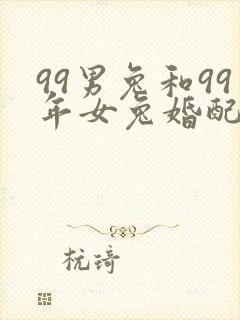 99男兔和99
年女兔婚配
杭琦